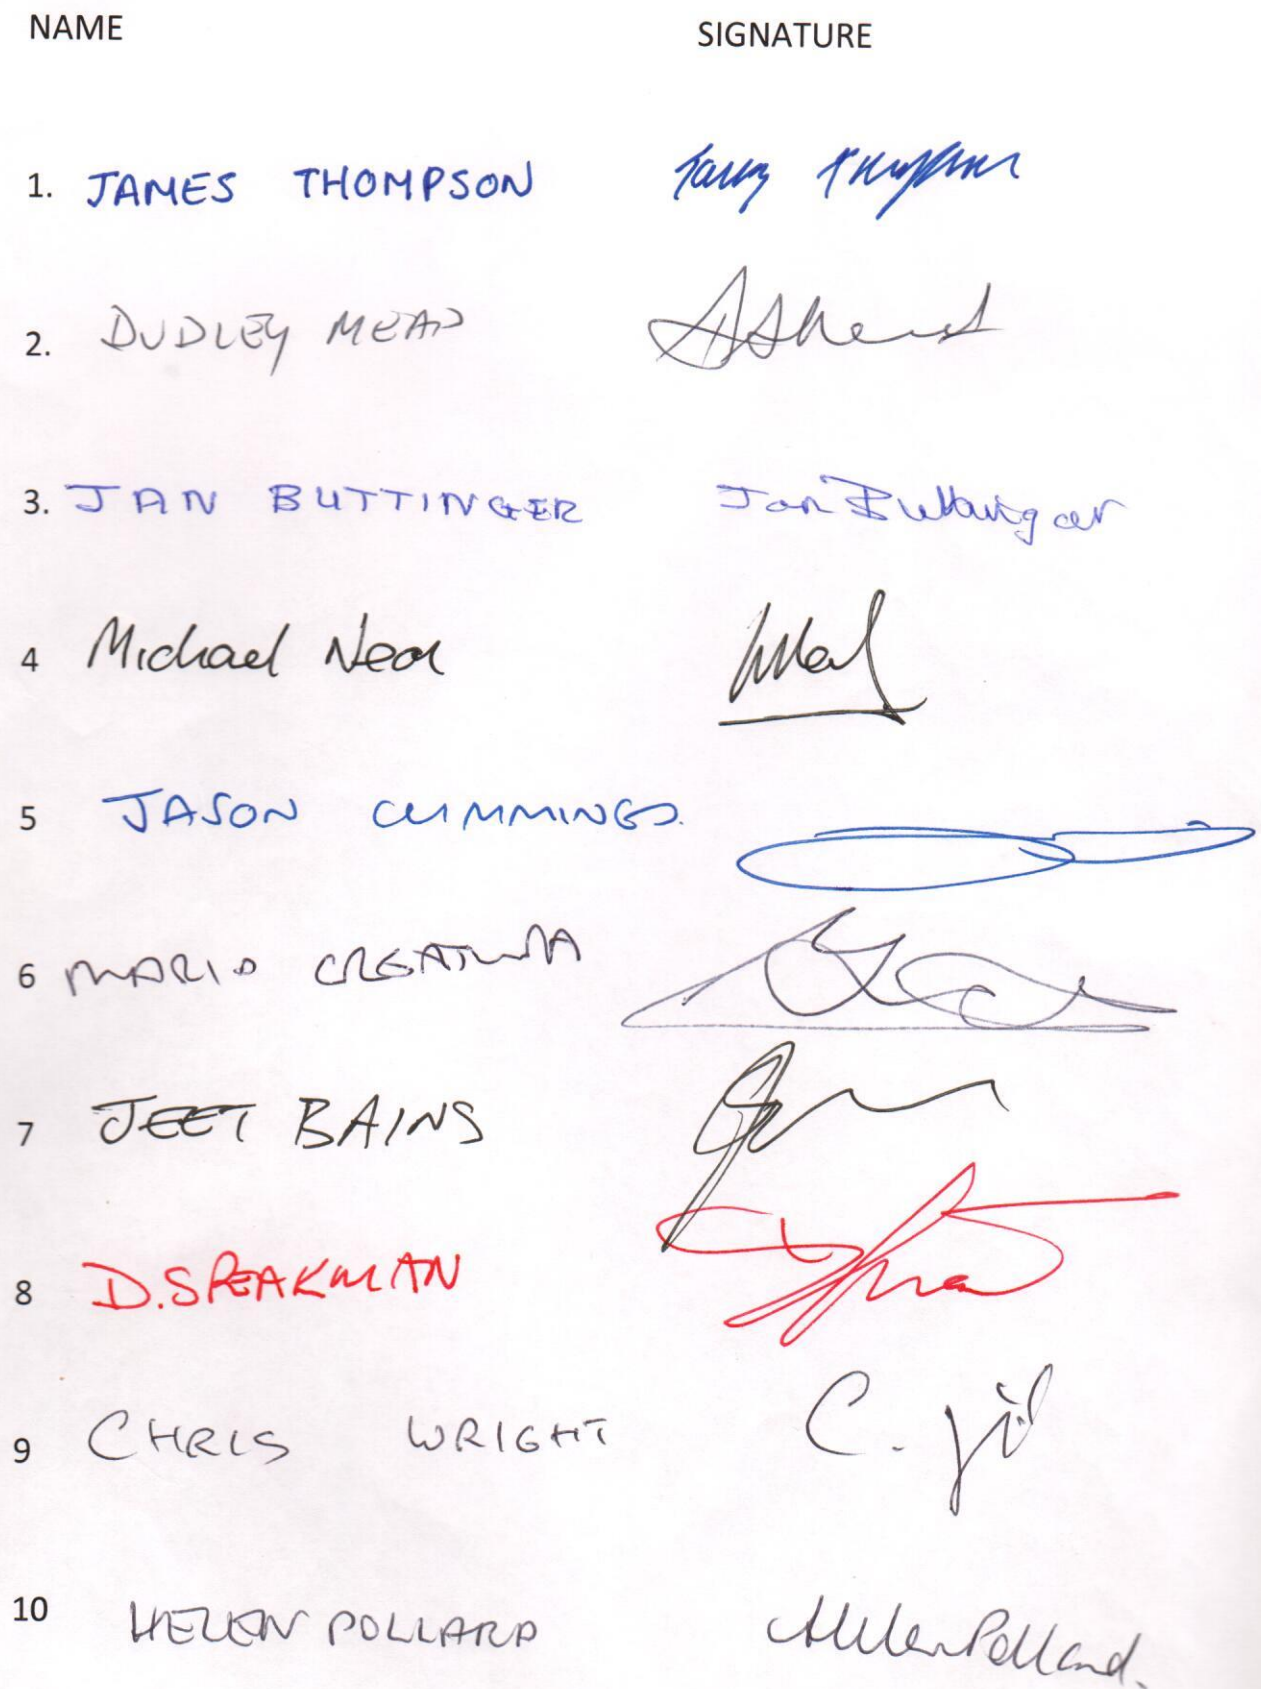 NAME SIGNATURE
1. JAMES THOMPSON
2. DUDLEY MEAD
3. JAN BUTTINGER Jan Buttinger
4 Michael Neal
5 JASON CUMMINGS.
6 MARIO CREATURA
7 JEET BAINS
8 D. SPEAKMAN
9 CHRIS WRIGHT C.
10 HELEN POLLARD Helen Pollard.